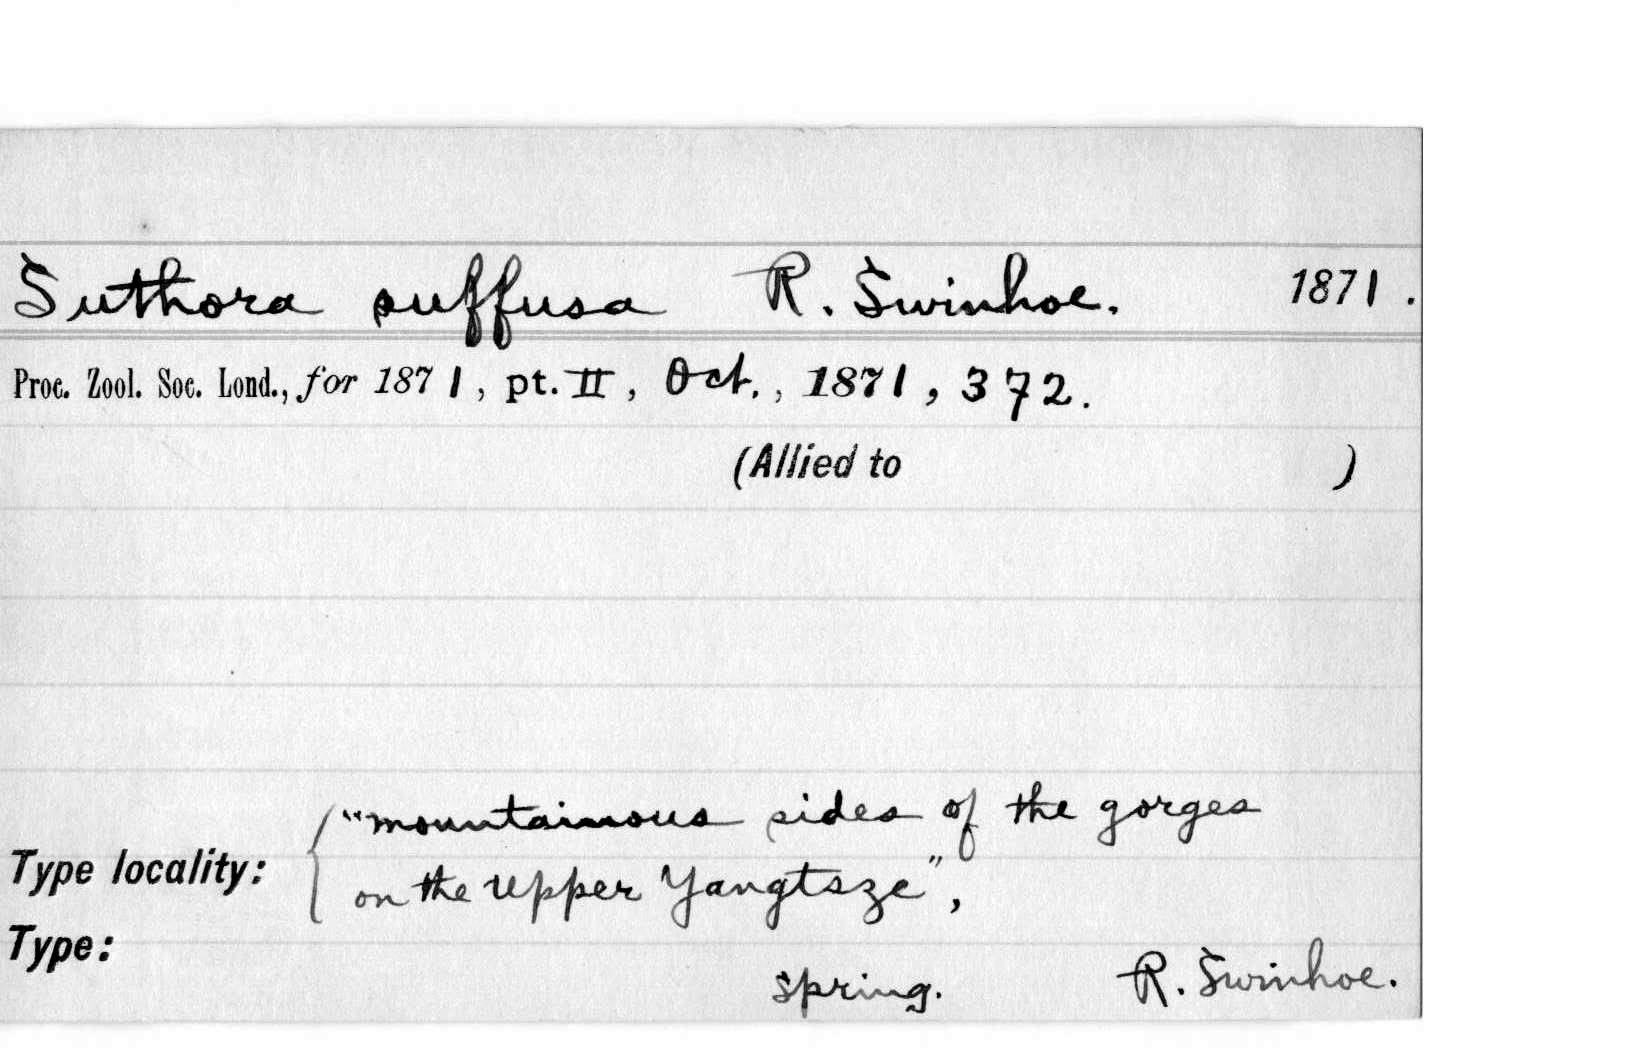 Suthora suffusa R. Swinhoe. 1871.
Proc. Zool. Soc. Lond., for 1871, pt. II, Oct., 1871, 372.
(Allied to )
"mountainous sides of the gorges
Type locality: on the Upper Yangtsze",
Type:
spring. R. Swinhoe.